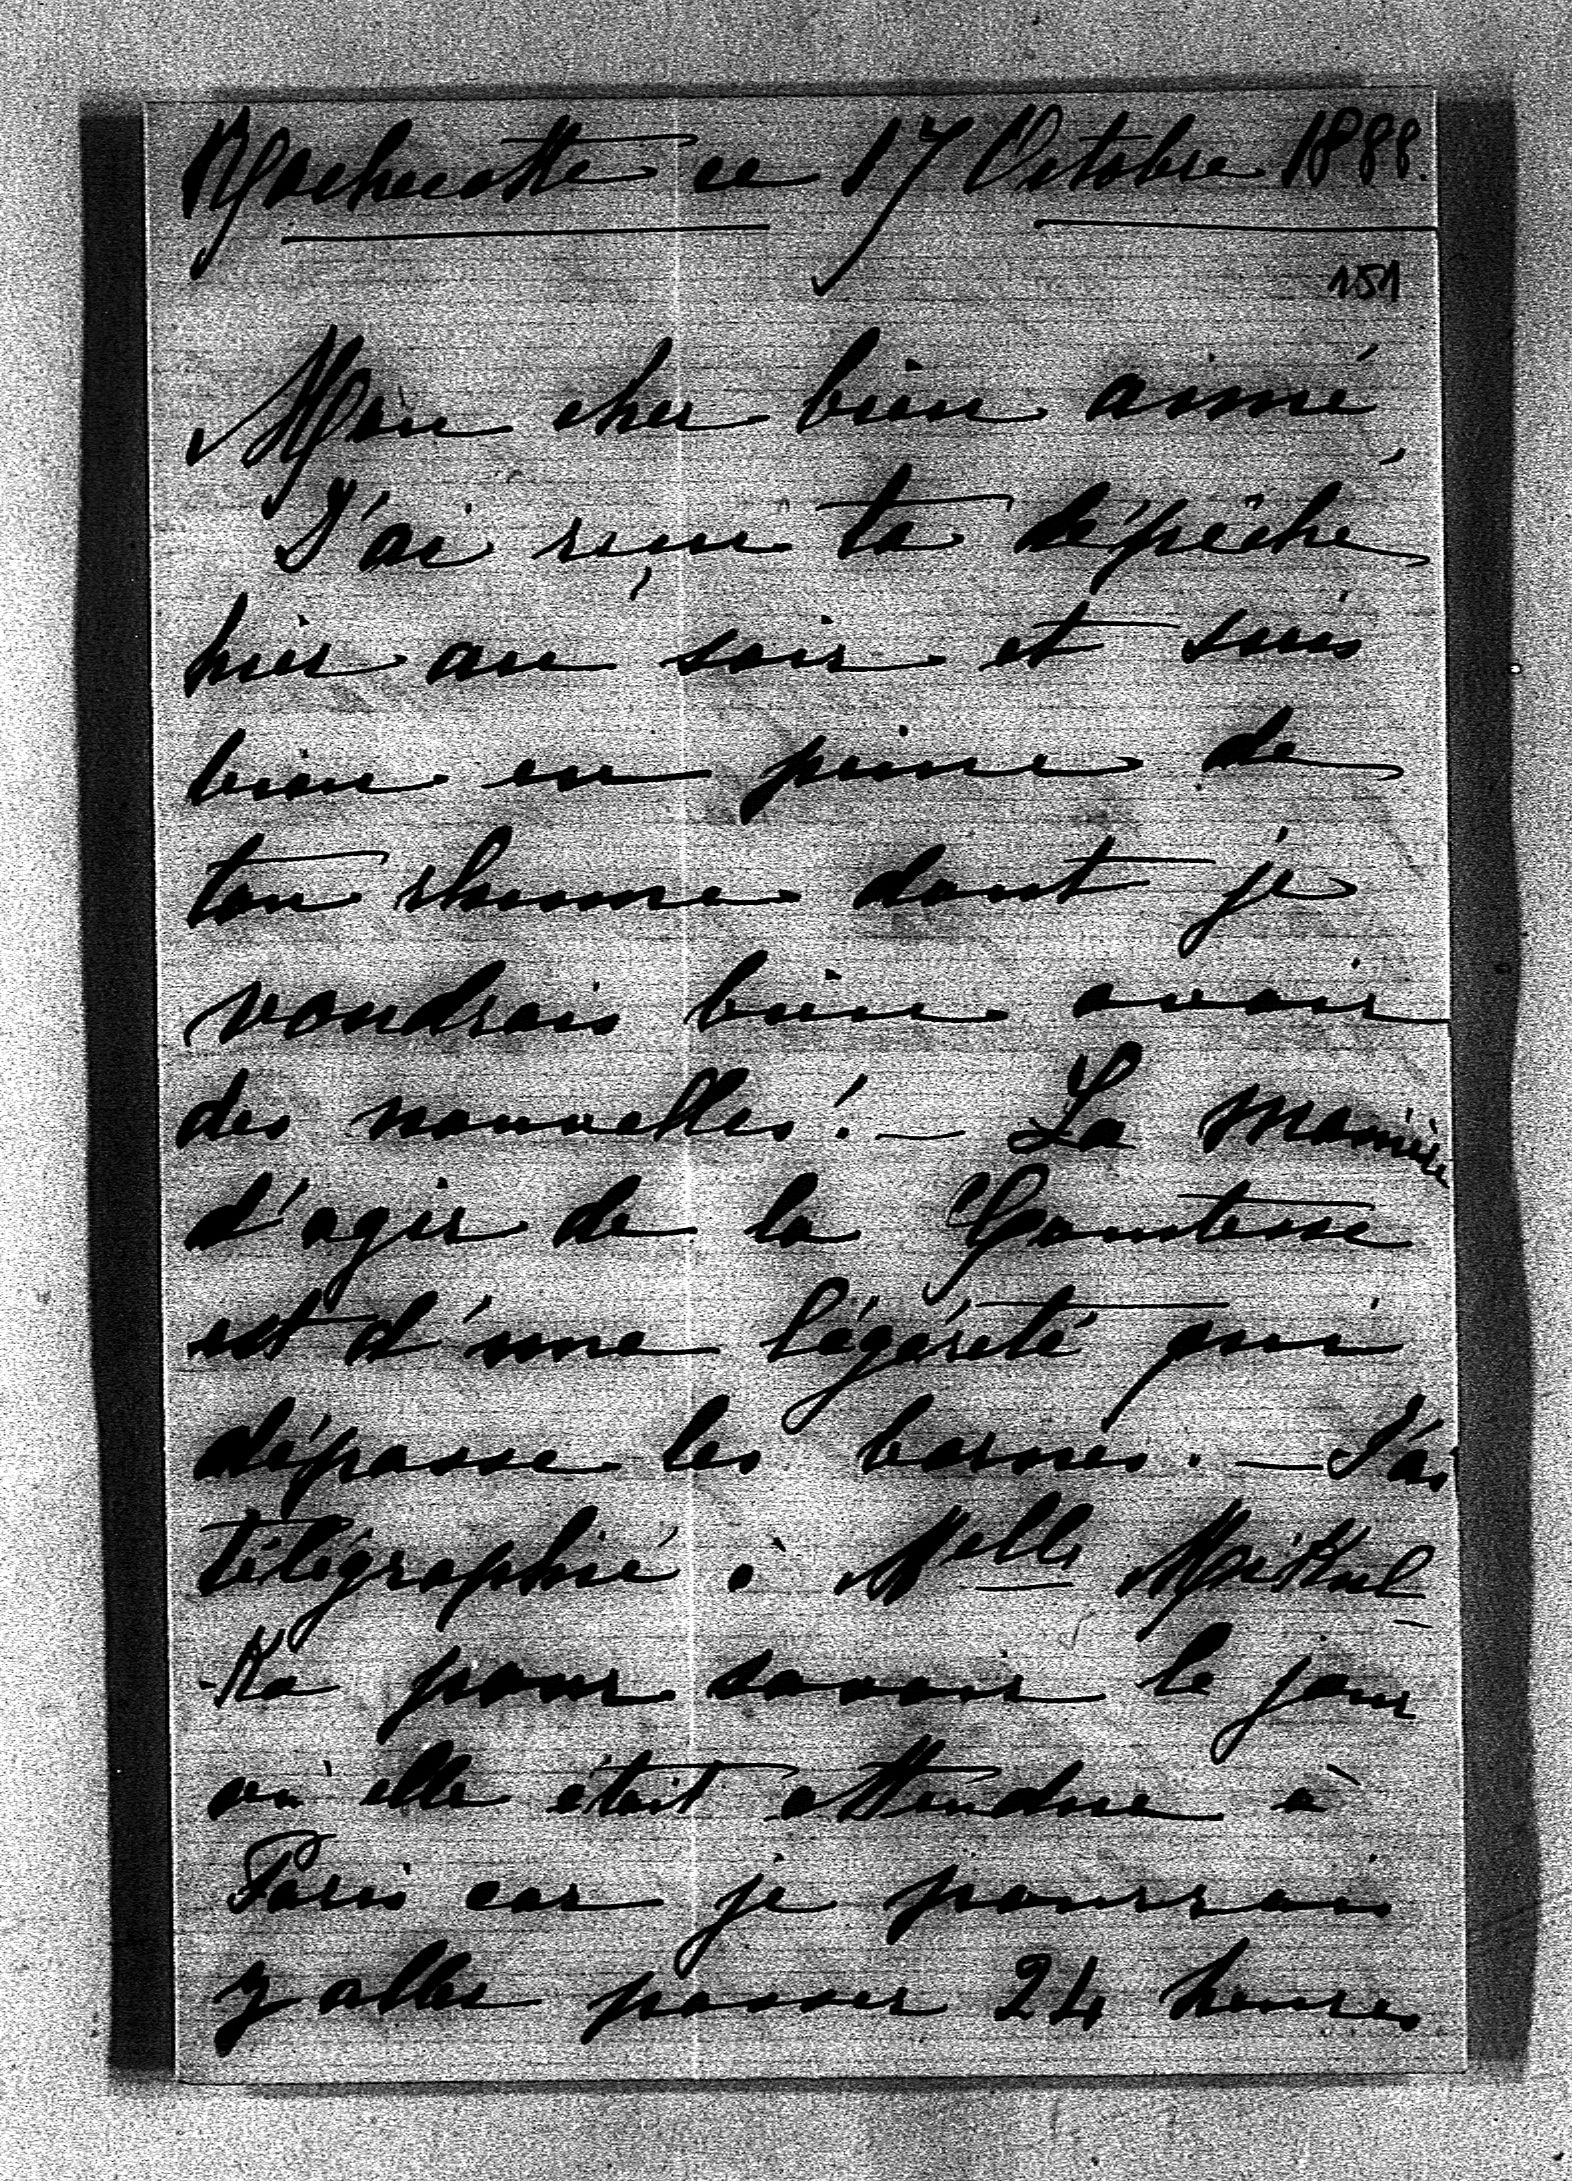 Rochecotte ce 17 Octobre 1888.
151
Mon cher bien aimé,
J'ai reçu ta dépêche
hier au soir et suis
bien en peine de
ton rhume dont je
voudrais bien avoir
des nouvelles! — La manière
d'agir de la Comtesse
est d'une légéreté qui
dépasse les bornes. — J'ai
télégraphié à Melle Mikul-
-Ka pour savoir le jour
où elle était attendue à
Paris car je pourrais
y aller passer 24 heures